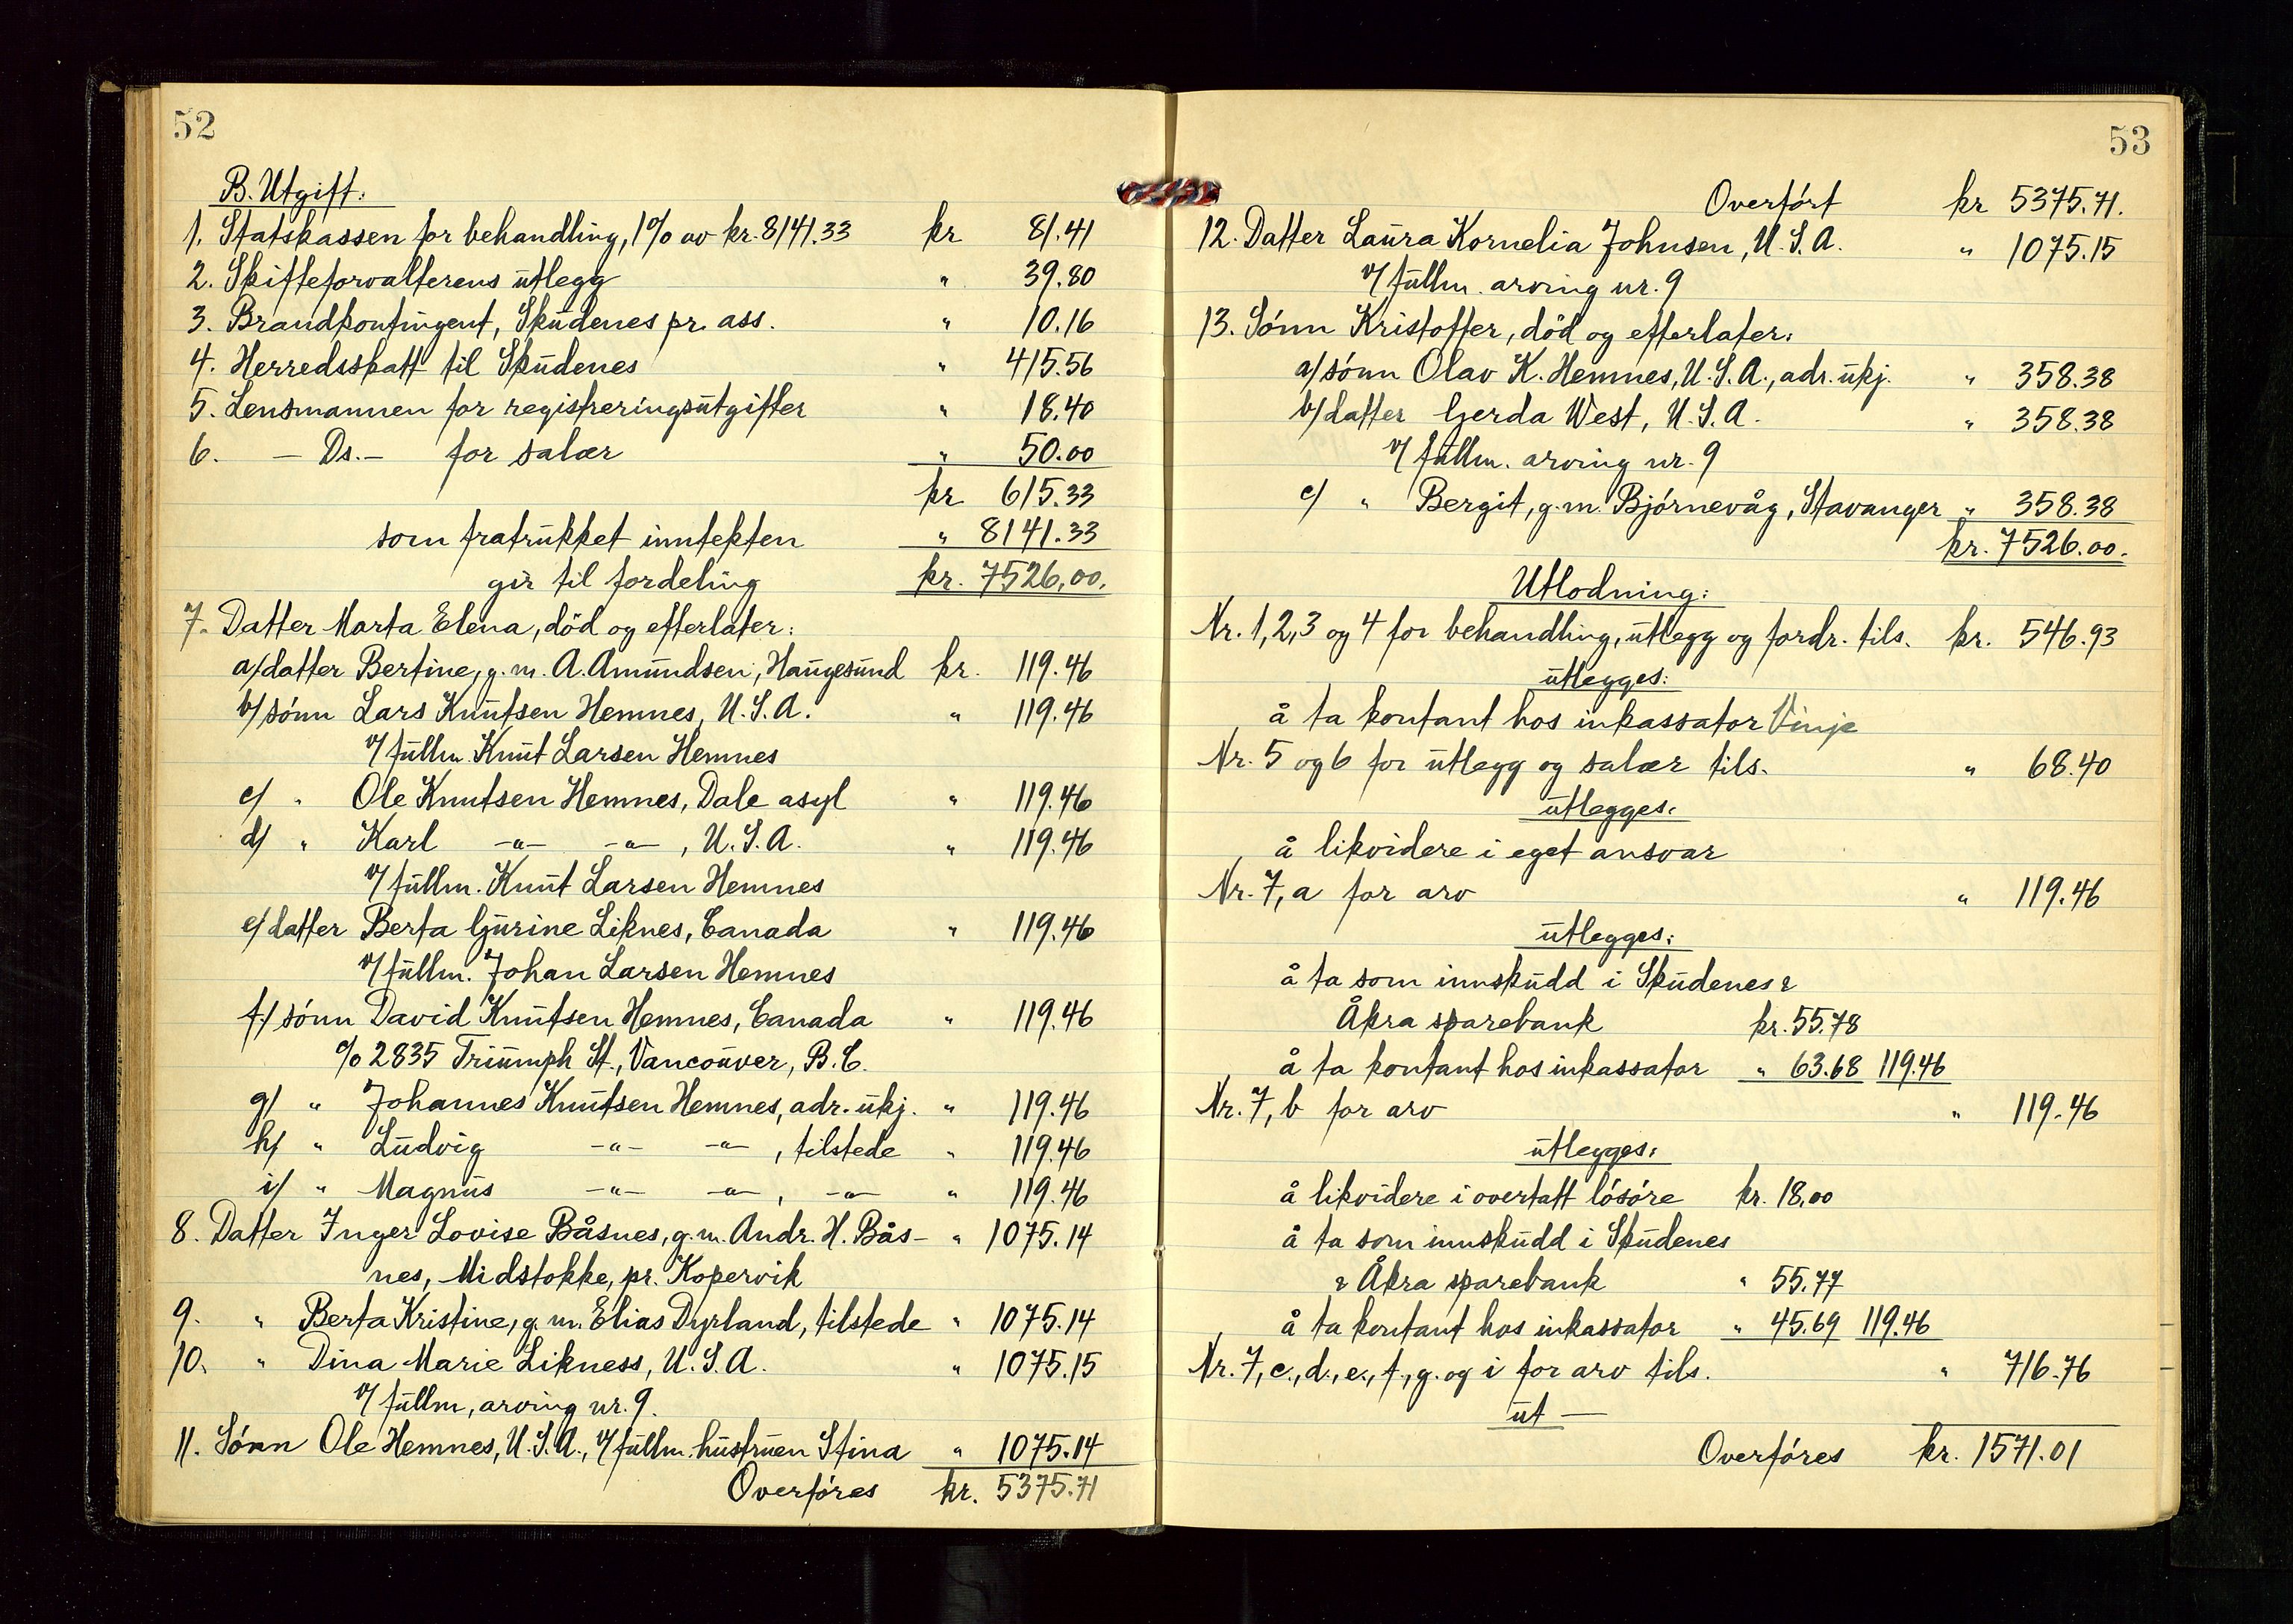 52
B. Utgift:
1. Statskassen for behandling, 1% av kr. 8141.33 kr 81.41
2. Skifteforvalterens utlegg " 39.80
3. Brandkontingent, Skudenes pr. ass. " 10.16
4. Herredsskatt til Skudenes " 415.56
5. Lensmannen for registreringsutgifter " 18.40
6. — Ds. — for salær " 50.00
kr 615.33
som fratrukket inntekten " 8141.33
gir til fordeling kr. 7526,00.
7. Datter Marta Elena, död og efterlater:
a/ datter Bertine, g. m. A. Amundsen, Haugesund kr. 119.46
b/ sónn Lars Knutsen Hemnes, U.S.A. " 119.46
v/ fullm. Knut Larsen Hemnes
c/ " Ole Knutsen Hemnes, Dale asyl " 119.46
d/ " Karl -"- -"-, U.S.A. " 119.46
v/ fullm. Knut Larsen Hemnes
e/ datter Berta Gurine Liknes, Canada " 119.46
v/ fullm. Johan Larsen Hemnes
f/ sónn David Knutsen Hemnes, Canada " 119.46
c/o 2835 Triumph St., Vancouver, B.C.
g/ " Johannes Knutsen Hemnes, adr. ukj. " 119.46
h/ " Ludvig -"- -"-, tilstede " 119.46
i/ " Magnus -"- -"-, -"- " 119.46
8. Datter Inger Lovise Båsnes, g. m. Andr. H. Bås- " 1075.14
nes, Midstokke, pr. Kopervik
9. " Berta Kristine, g. m. Elias Dyrland, tilstede " 1075.14
10. " Dina Marie Likness, U.S.A. " 1075.15
v/ fullm, arving nr. 9.
11. Sónn Ole Hemnes, U.S.A., v/ fullm. hustruen Stina " 1075.14
Overfóres kr. 5375.71
53
Overfórt kr 5375.71.
12. Datter Laura Kornelia Johnsen, U.S.A. " 1075.15
v/ fullm. arving nr. 9
13. Sónn Kristoffer, död og efterlater:
a/ sónn Olav K. Hemnes, U.S.A., adr. ukj. " 358.38
b/ datter Gerda West, U.S.A. " 358.38
v/ fullm. arving nr. 9
c/ " Bergit, g. m. Bjórnevåg, Stavanger " 358.38
kr. 7526.00.
Utlodning:
Nr. 1, 2, 3 og 4 for behandling, utlegg og fordr. tils. kr. 546.93
utlegges:
å ta kontant hos inkassator Vinje
Nr. 5 og 6 for utlegg og salær tils. " 68.40
utlegges:
å likvidere i eget ansvar
Nr. 7, a for arv " 119.46
utlegges:
å ta som innskudd i Skudenes &
Åkra sparebank kr. 55.78
å ta kontant hos inkassator " 63.68 119.46
Nr. 7, b for arv " 119.46
utlegges:
å likvidere i overtatt lósóre kr. 18,00
å ta som innskudd i Skudenes
& Åkra sparebank " 55.77
å ta kontant hos inkassator " 45.69 119.46
Nr. 7, c., d., e., f., g. og i for arv tils. " 716.76
ut —
Overfóres kr. 1571.01